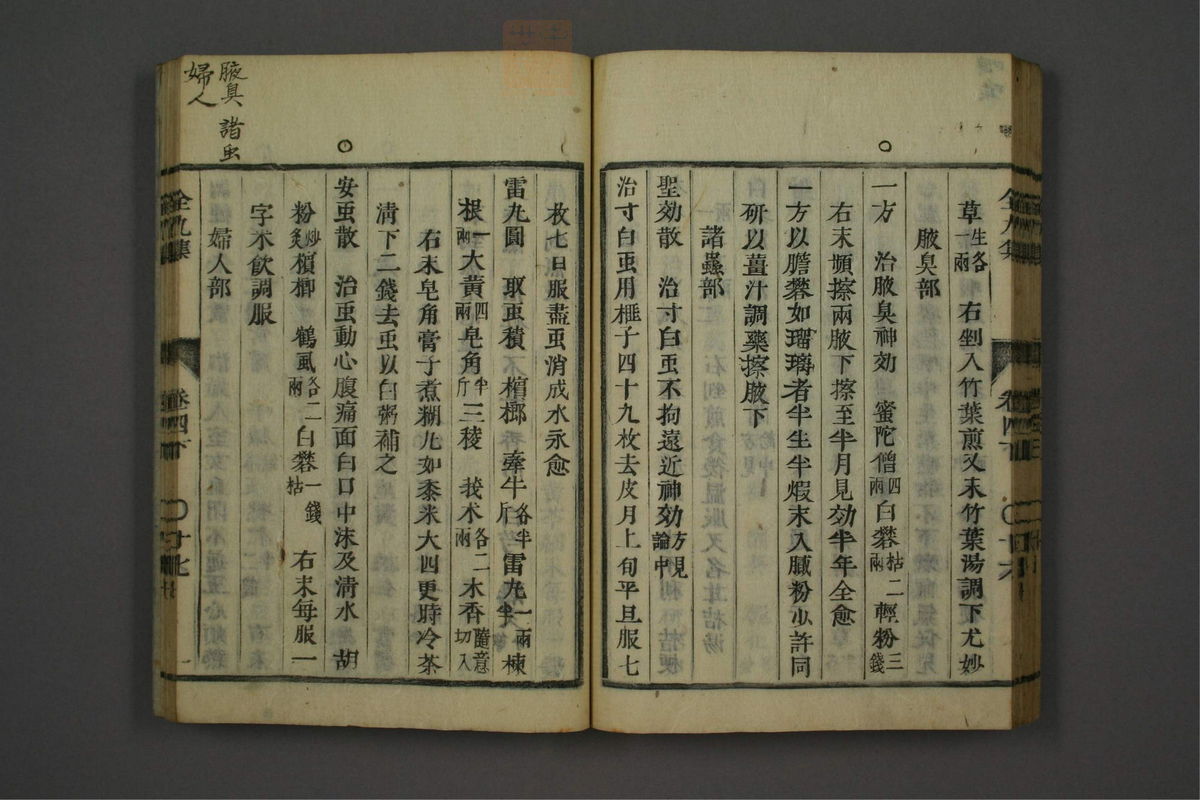 草生各一兩　右剉入竹葉煎又末竹葉湯調下尤妙
腋臭部
一方　治腋臭神効　蜜陀僧四兩白礬枯二兩輕粉三錢
右末頻擦兩腋下擦至半月見効半年全愈
一方以膽礬如瑠璃者半生半煆末入膩粉少許同
研以薑汁調藥擦腋下
諸蟲部
聖効散　治寸白虫不拘遠近神効方見論中
治寸白虫用榧子四十九枚去皮月上旬平旦服七
腋臭　諸虫
婦人
枚七日服盡虫消成水永愈
雷丸圓　取虫積　檳榔　牽牛各半斤雷丸一兩半楝
根一兩大黃四兩皂角半斤三稜　莪朮各二兩木香隨意切入
右末皂角膏子煮糊丸如黍米大四更時冷茶
清下二錢去虫以白粥補之
安虫散　治虫動心腹痛面白口中沫及清水　胡
粉炒炙檳榔　鶴虱各二兩白礬一錢枯　右末每服一
字米飲調服
婦人部
全九集
卷四下
十七